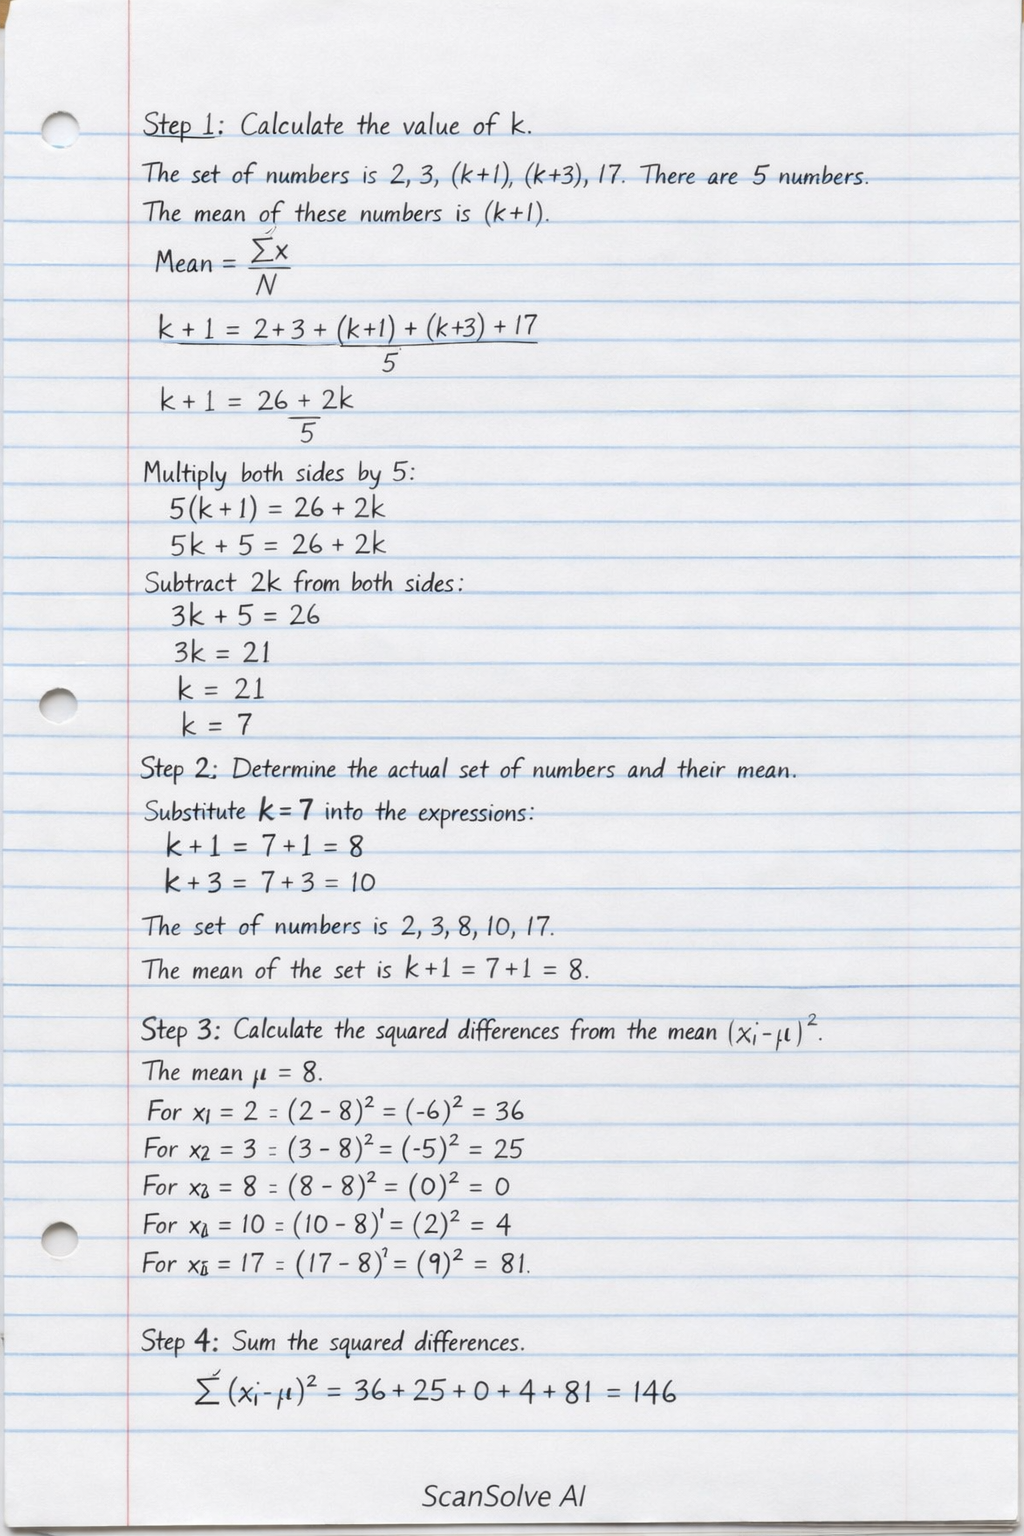 Step 1: Calculate the value of k.
The set of numbers is 2, 3, (k+1), (k+3), 17. There are 5 numbers.
The mean of these numbers is (k+1).
Mean = Σx
N
k + 1 = 2 + 3 + (k+1) + (k+3) + 17
5
k + 1 = 26 + 2k
5
Multiply both sides by 5:
5(k + 1) = 26 + 2k
5k + 5 = 26 + 2k
Subtract 2k from both sides:
3k + 5 = 26
3k = 21
k = 21
k = 7
Step 2: Determine the actual set of numbers and their mean.
Substitute k = 7 into the expressions:
k + 1 = 7 + 1 = 8
k + 3 = 7 + 3 = 10
The set of numbers is 2, 3, 8, 10, 17.
The mean of the set is k + 1 = 7 + 1 = 8.
Step 3: Calculate the squared differences from the mean (xᵢ - μ)².
The mean μ = 8.
For x₁ = 2 = (2 - 8)² = (-6)² = 36
For x₂ = 3 = (3 - 8)² = (-5)² = 25
For = 8 = (8 - 8)² = (0)² = 0
For = 10 = (10 - 8)' = (2)² = 4
For = 17 = (17 - 8)² = (9)² = 81.
Step 4: Sum the squared differences.
Σ (xᵢ - μ)² = 36 + 25 + 0 + 4 + 81 = 146
ScanSolve AI